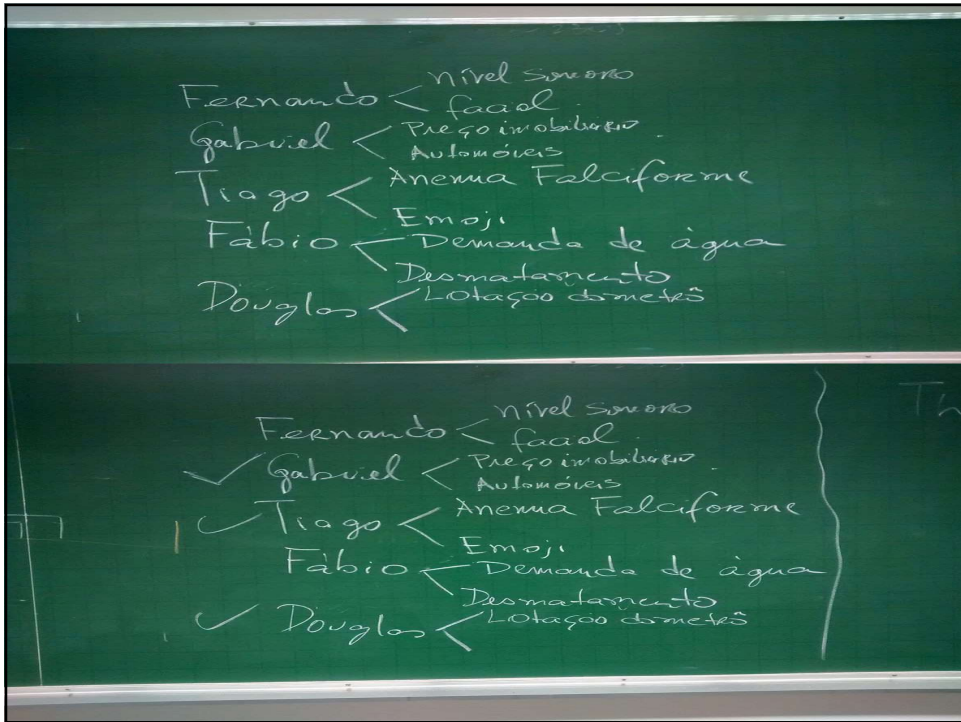 nível sonoro
Fernando
facial
Gabriel
Preço imobiliário
Automóveis
Tiago
Anemia Falciforme
Emoji
Fábio
Demanda de água
Desmatamento
Douglas
Lotação do metrô
nível sonoro
Fernando
facial
Gabriel
Preço imobiliário
Automóveis
Tiago
Anemia Falciforme
Emoji
Fábio
Demanda de água
Desmatamento
Douglas
Lotação do metrô
Th